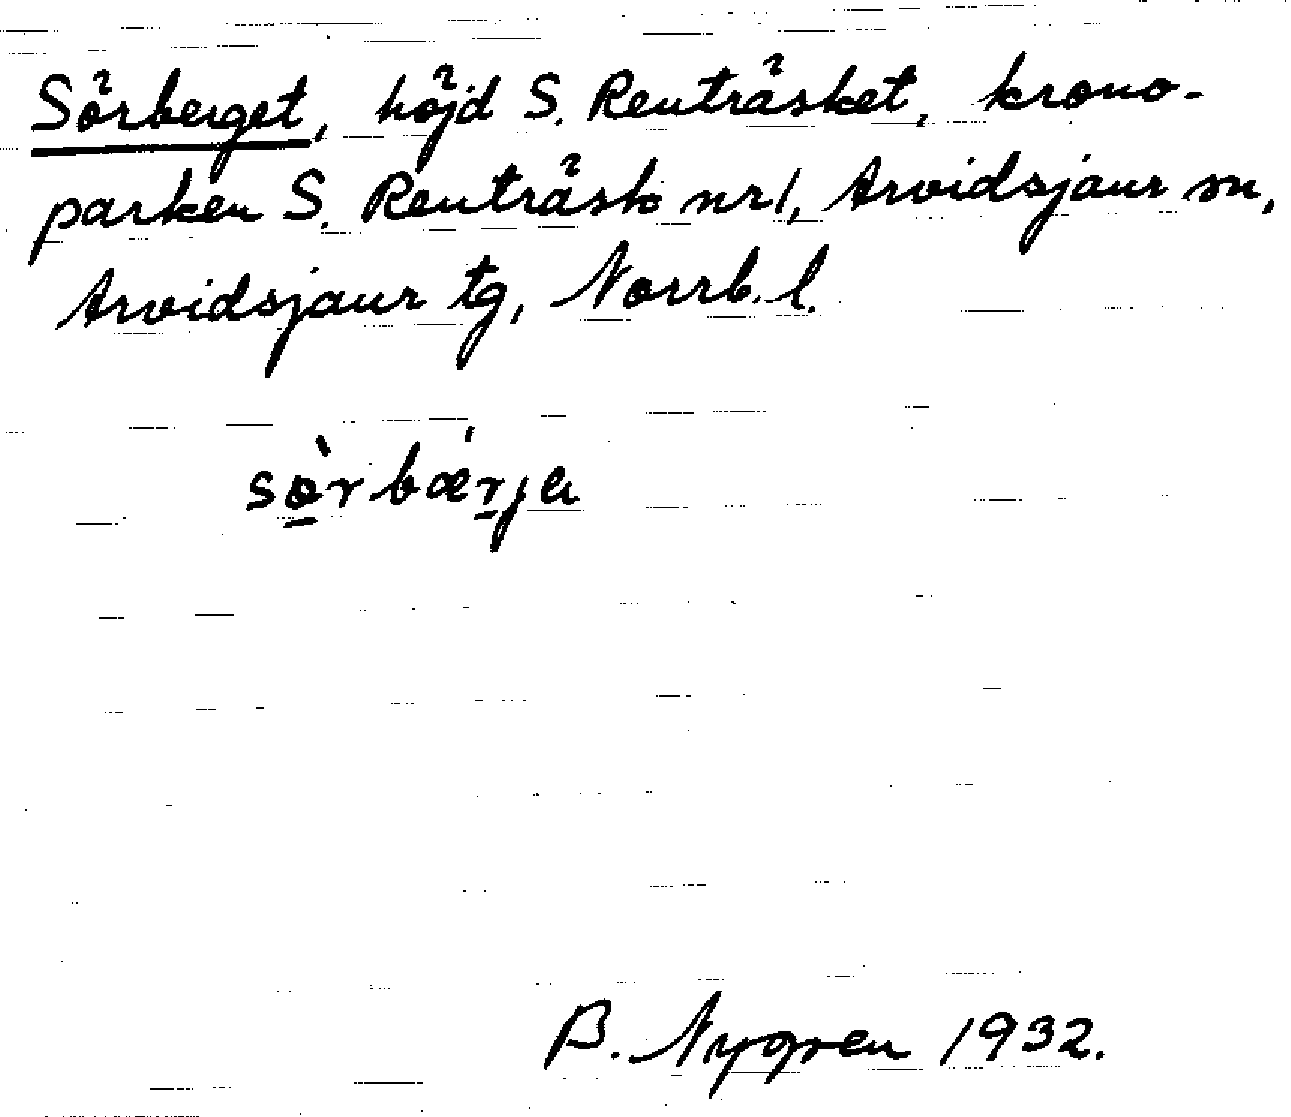 Sörberget, höjd S. Renträsket, krono-
parken S. Renträsk nr 1, Arvidsjaur sn,
Arvidsjaur tg, Norrb. l.
sò̱rbæ̍ṟja
B. Nygren 1932.